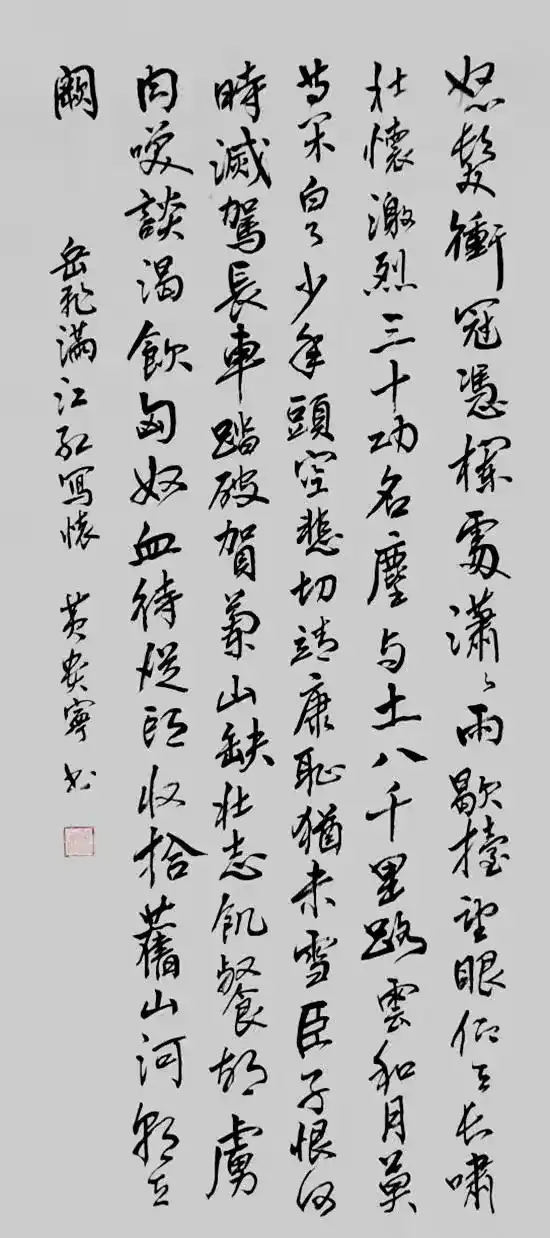 怒髮衝冠憑欄處瀟〻雨歇擡望眼仰天長嘯
壯懷激烈三十功名塵与土八千里路雲和月莫
等閑白了少年頭空悲切靖康恥猶未雪臣子恨何
時滅駕長車踏破賀蘭山缺壯志飢餐胡虜
肉笑談渴飲匈奴血待從頭收拾舊山河朝天
闕
岳飛滿江紅寫懷 黃安寧书